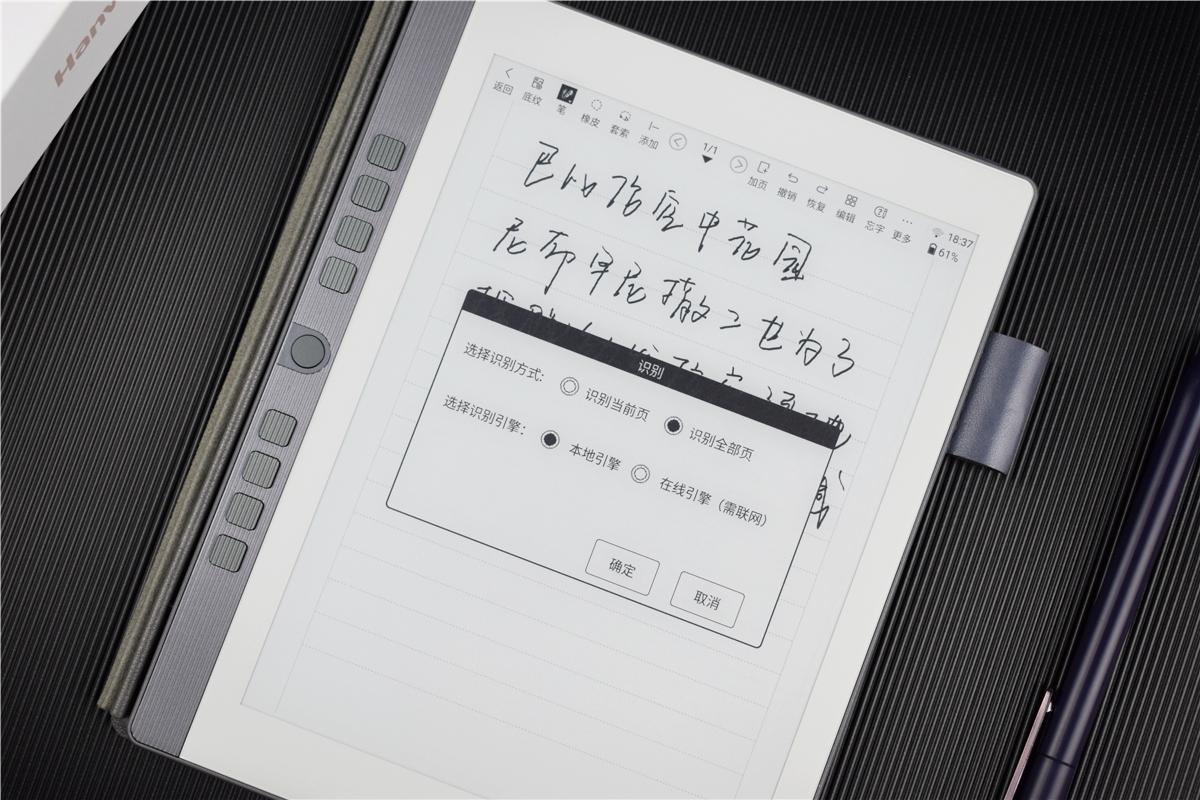 Hanv
返回 底纹 笔 橡皮 套索 添加 1/1 加页 撤销 恢复 编辑 忘字 更多
18:37
61%
巴比伦空中花园
尼布甲尼撒二世为了
识别
选择识别方式: 识别当前页 识别全部页
选择识别引擎: 本地引擎 在线引擎（需联网）
确定 取消